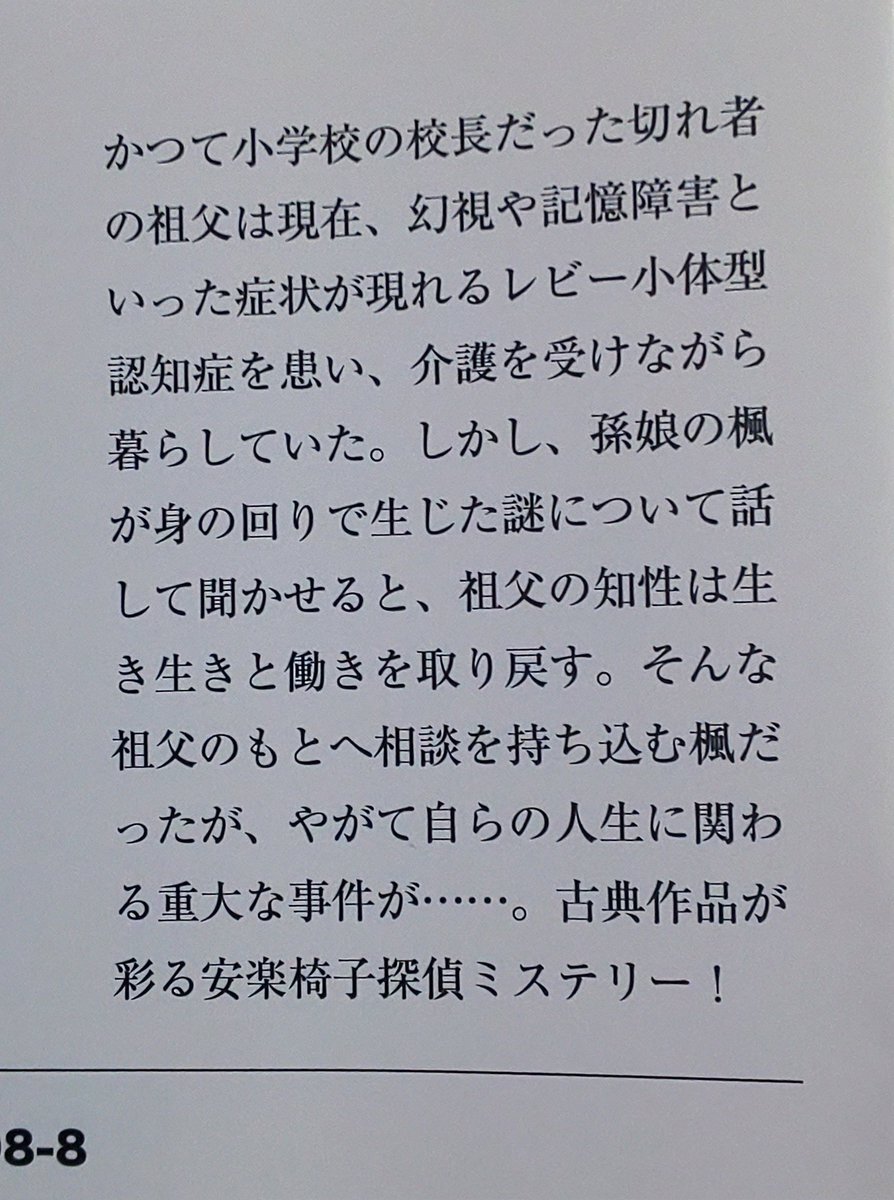 かつて小学校の校長だった切れ者
の祖父は現在、幻視や記憶障害と
いった症状が現れるレビー小体型
認知症を患い、介護を受けながら
暮らしていた。しかし、孫娘の楓
が身の回りで生じた謎について話
して聞かせると、祖父の知性は生
き生きと働きを取り戻す。そんな
祖父のもとへ相談を持ち込む楓だ
ったが、やがて自らの人生に関わ
る重大な事件が……。古典作品が
彩る安楽椅子探偵ミステリー！
8-8